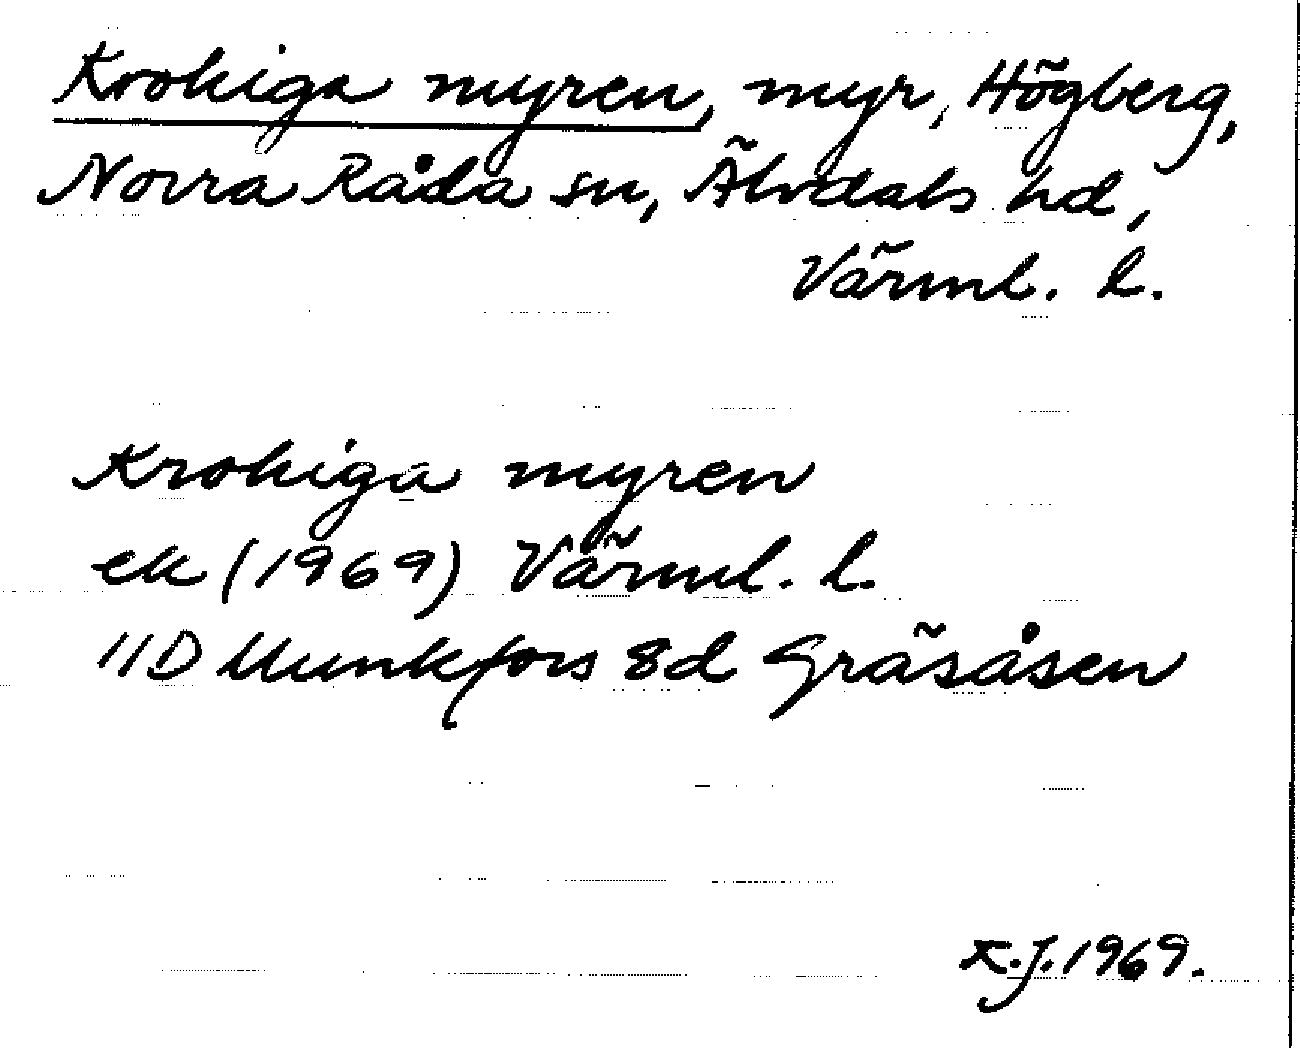 Krokiga myren, myr, Högberg,
Norra Råda sn, Älvdals hd,
Värml. l.
Krokiga myren
ek (1969) Värml. l.
11D Munkfors 8d Gräsåsen
K.J. 1969.